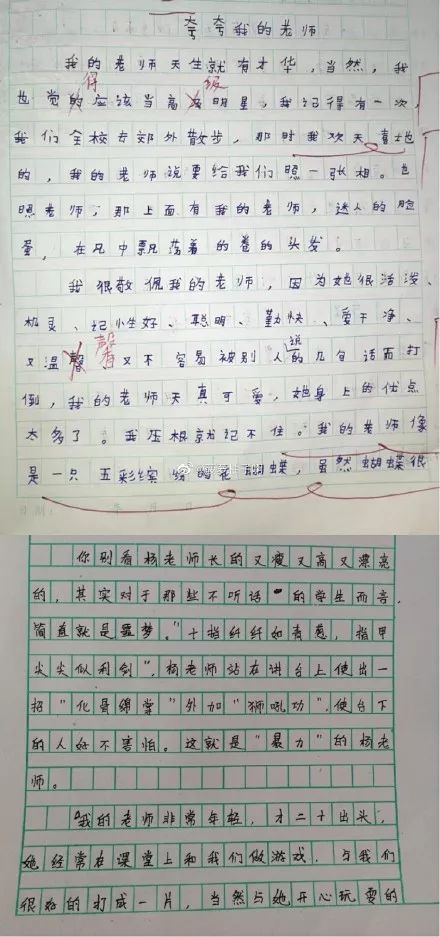 夸夸我的老师
我的老师天生就有才华，当然，我
得 级
也觉的应该当高及明星，我记得有一次，
我们全校去郊外散步，那时我欢天喜地
的，我的老师说要给我们照一张相。也
照老师，那上面有我的老师，迷人的脸
蛋，在风中飘荡着的卷的头发。
我很敬佩我的老师，因为她很活泼、
机灵、记性好、聪明、勤快、爱干净、
馨 说
又温 又不容易被别人的几句话而打
倒，我的老师天真可爱，她身上的优点
太多了。我压根就记不住。我的老师像
是一只五彩缤纷的花蝴蝶，虽然蝴蝶很
你别看杨老师长的又瘦又高又漂亮
的，其实对于那些不听话的学生而言，
简直就是噩梦。"十指纤纤如青葱，指甲
尖尖似利剑"，杨老师站在讲台上使出一
招"化骨绵掌"外加"狮吼功"，使台下
的人好不害怕。这就是"暴力"的杨老
师。
我的老师非常年轻，才二十出头，
她经常在课堂上和我们做游戏，与我们
很好的打成一片，当然与她开心玩耍的